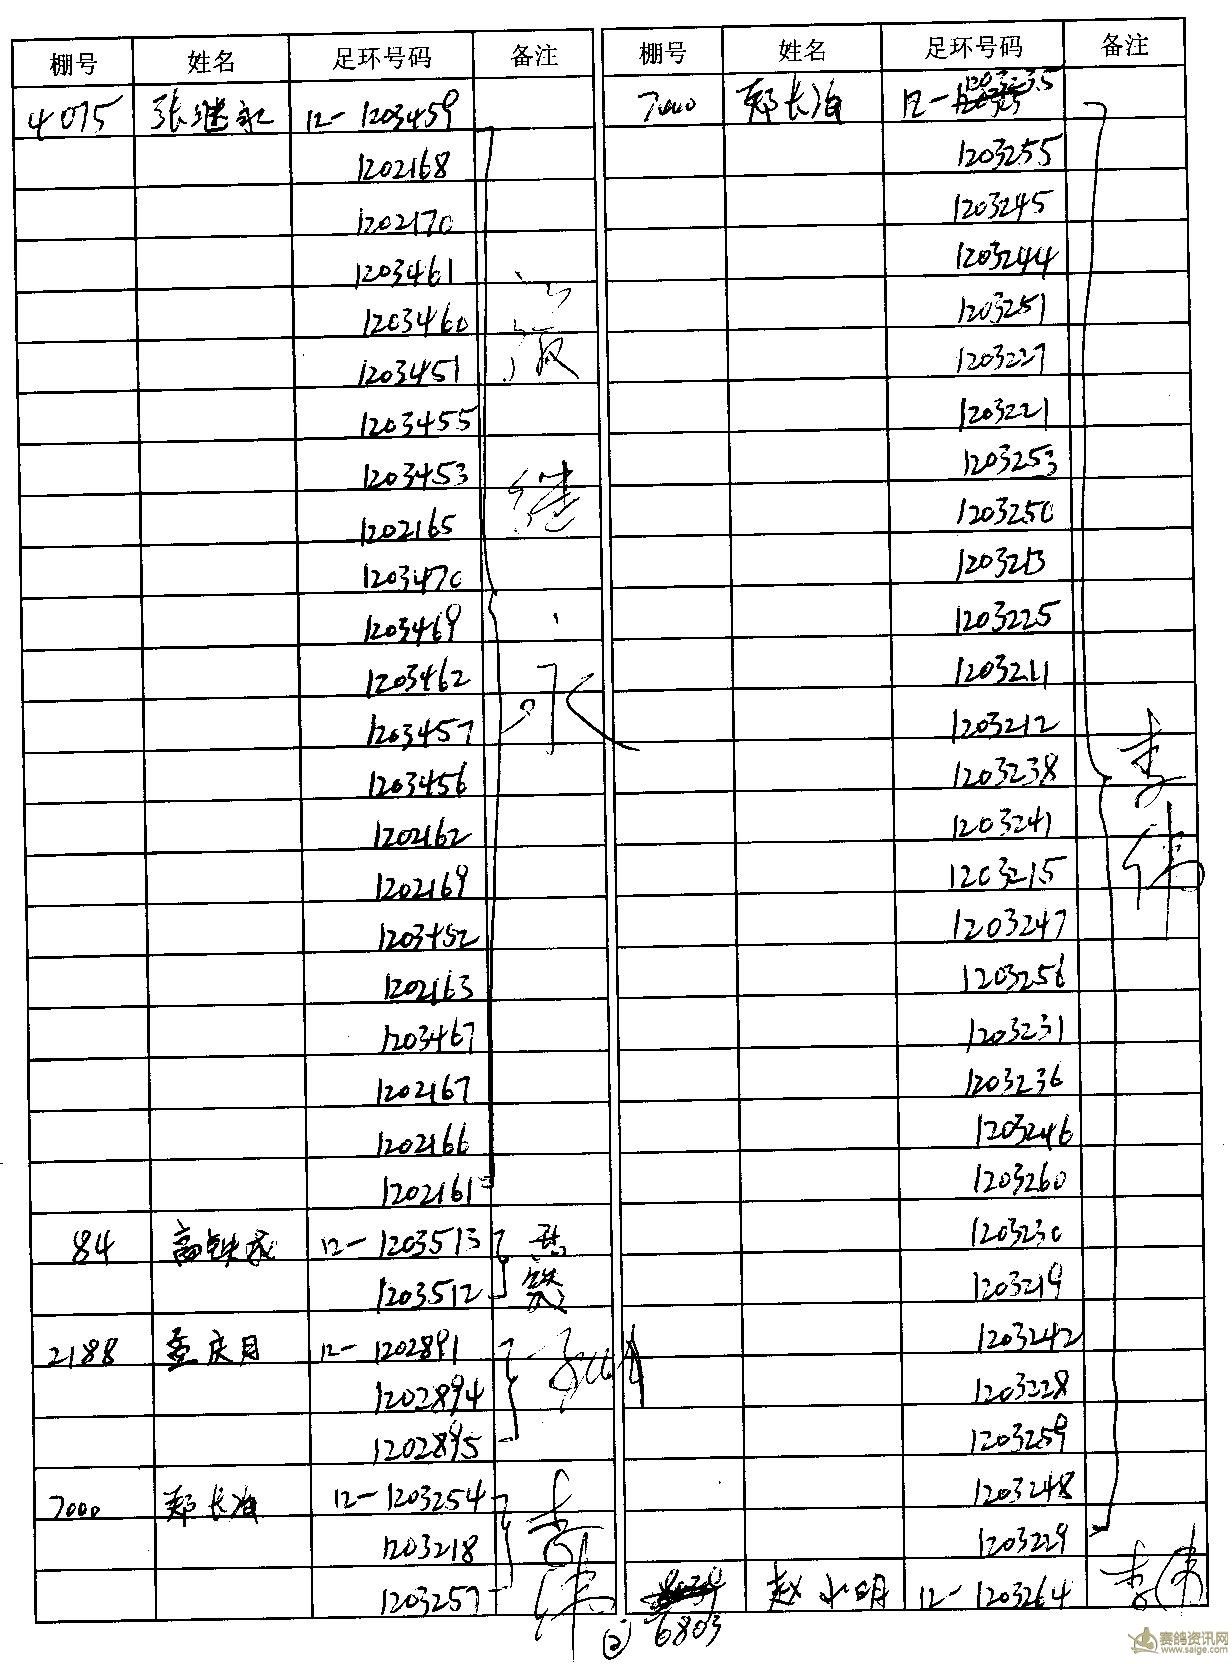 棚号 姓名 足环号码 备注
4075 张继永 12-1203459
1202168
1202170
1203461
1203460
1203451
1203455
1203453
1202165
1203470
1203469
1203462
1203457
1203456
1202162
1202169
1203452
1202163
1203467
1202167
1202166
1202161
张继永
84 高铁成 12-1203513
1203512
2188 孟庆月 12-1202891
1202894
1202895
7000 郑长海 12-1203254
1203218
1203257
李伟
棚号 姓名 足环号码 备注
7000 郑长海 12-1203235
1203255
1203245
1203244
1203251
1203227
1203221
1203253
1203250
1203213
1203225
1203211
1203212
1203238
1203241
1203215
1203247
1203256
1203231
1203236
1203246
1203260
1203230
1203219
1203242
1203228
1203259
1203248
1203229
李伟
6803 赵小明 12-1203264 李伟
②
赛鸽资讯网
www.saige.com